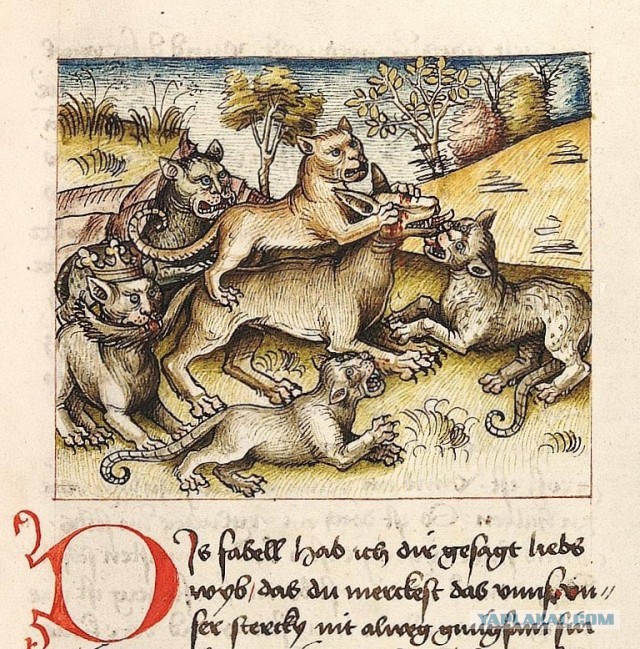 DIs fabell hab ich dir gesagt liebs
wyb / das du merckest das vnns vn//
ser stercky nit alweg gnugsam
YAPLAKAL.COM